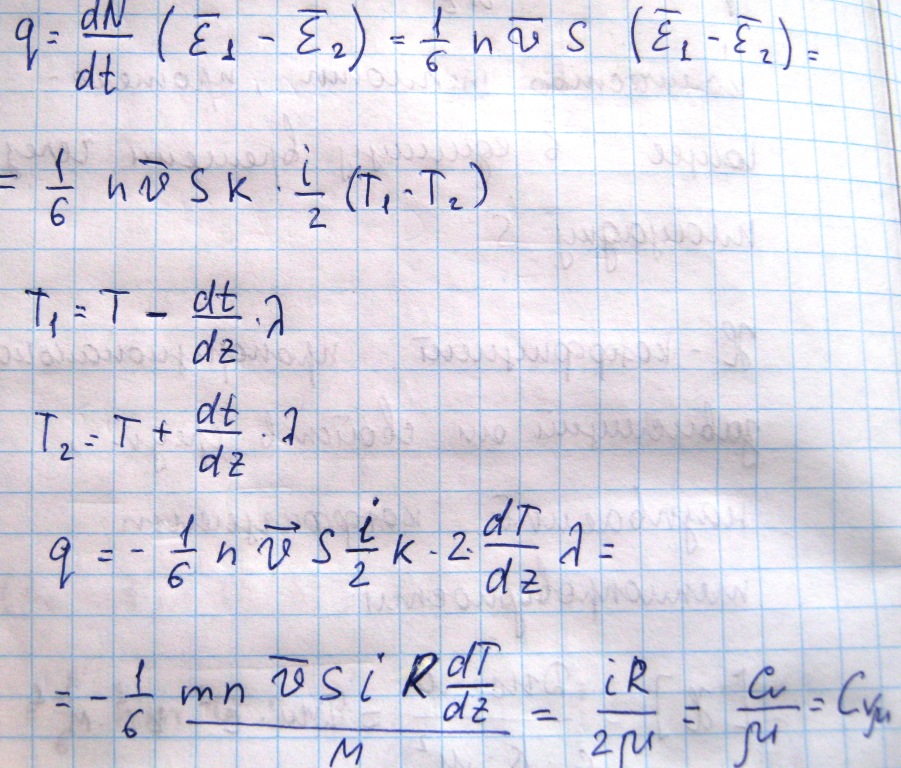 q = dN/dt (ε̄₁ - ε̄₂) = 1/6 n v̄ S (ε̄₁ - ε̄₂) =
= 1/6 n v̄ S k · i/2 (T₁ - T₂)
T₁ = T - dt/dz · λ
T₂ = T + dt/dz · λ
q = - 1/6 n v⃗ S i/2 k · 2 · dT/dz λ =
= - 1/6 mn v̄ S i R dT/dz / M = iR/2μ = Cv/μ = Cvμ